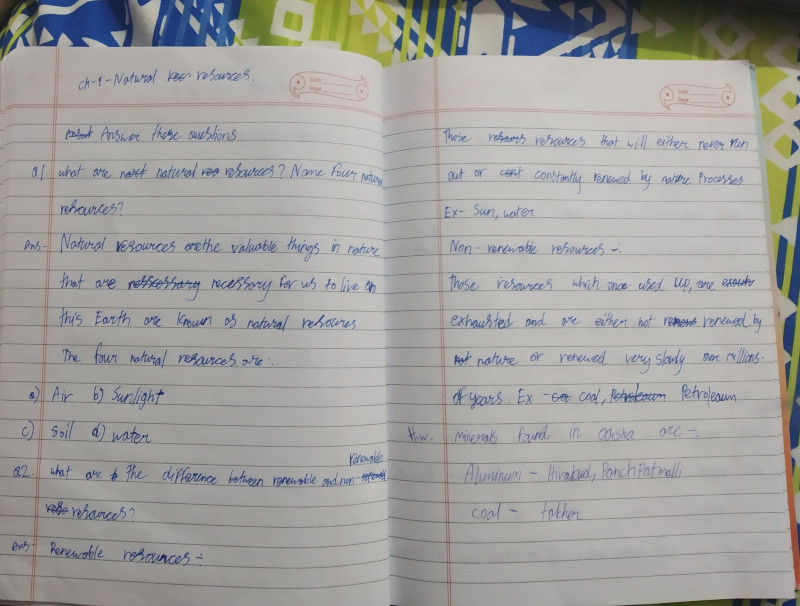 ch-1-Natural resources.
Date
Page
Answer these questions
Q1. what are natural resources? Name four natural
resources?
Ans- Natural resources are the valuable things in nature
that are necessary for us to live on
this Earth are known as natural resoures
The four natural resources are:
a) Air b) Sunlight
c) Soil d) water
renewable
Q2. what are the difference between renewable and non-
resources?
Ans- Renewable resources :-
Date
Page
Those resources that will either never run
out or constantly renewed by nature Processes
Ex- Sun, water
Non-renewable resources :-
Those resources which once used up, are
exhausted and are either not renewed by
nature or renewed very slowly over millions.
of years. Ex - coal, Petroleaum
H.w. minerals found in odisha are -.
Aluminum - Hirakud, PanchPatmalli
coal - talcher